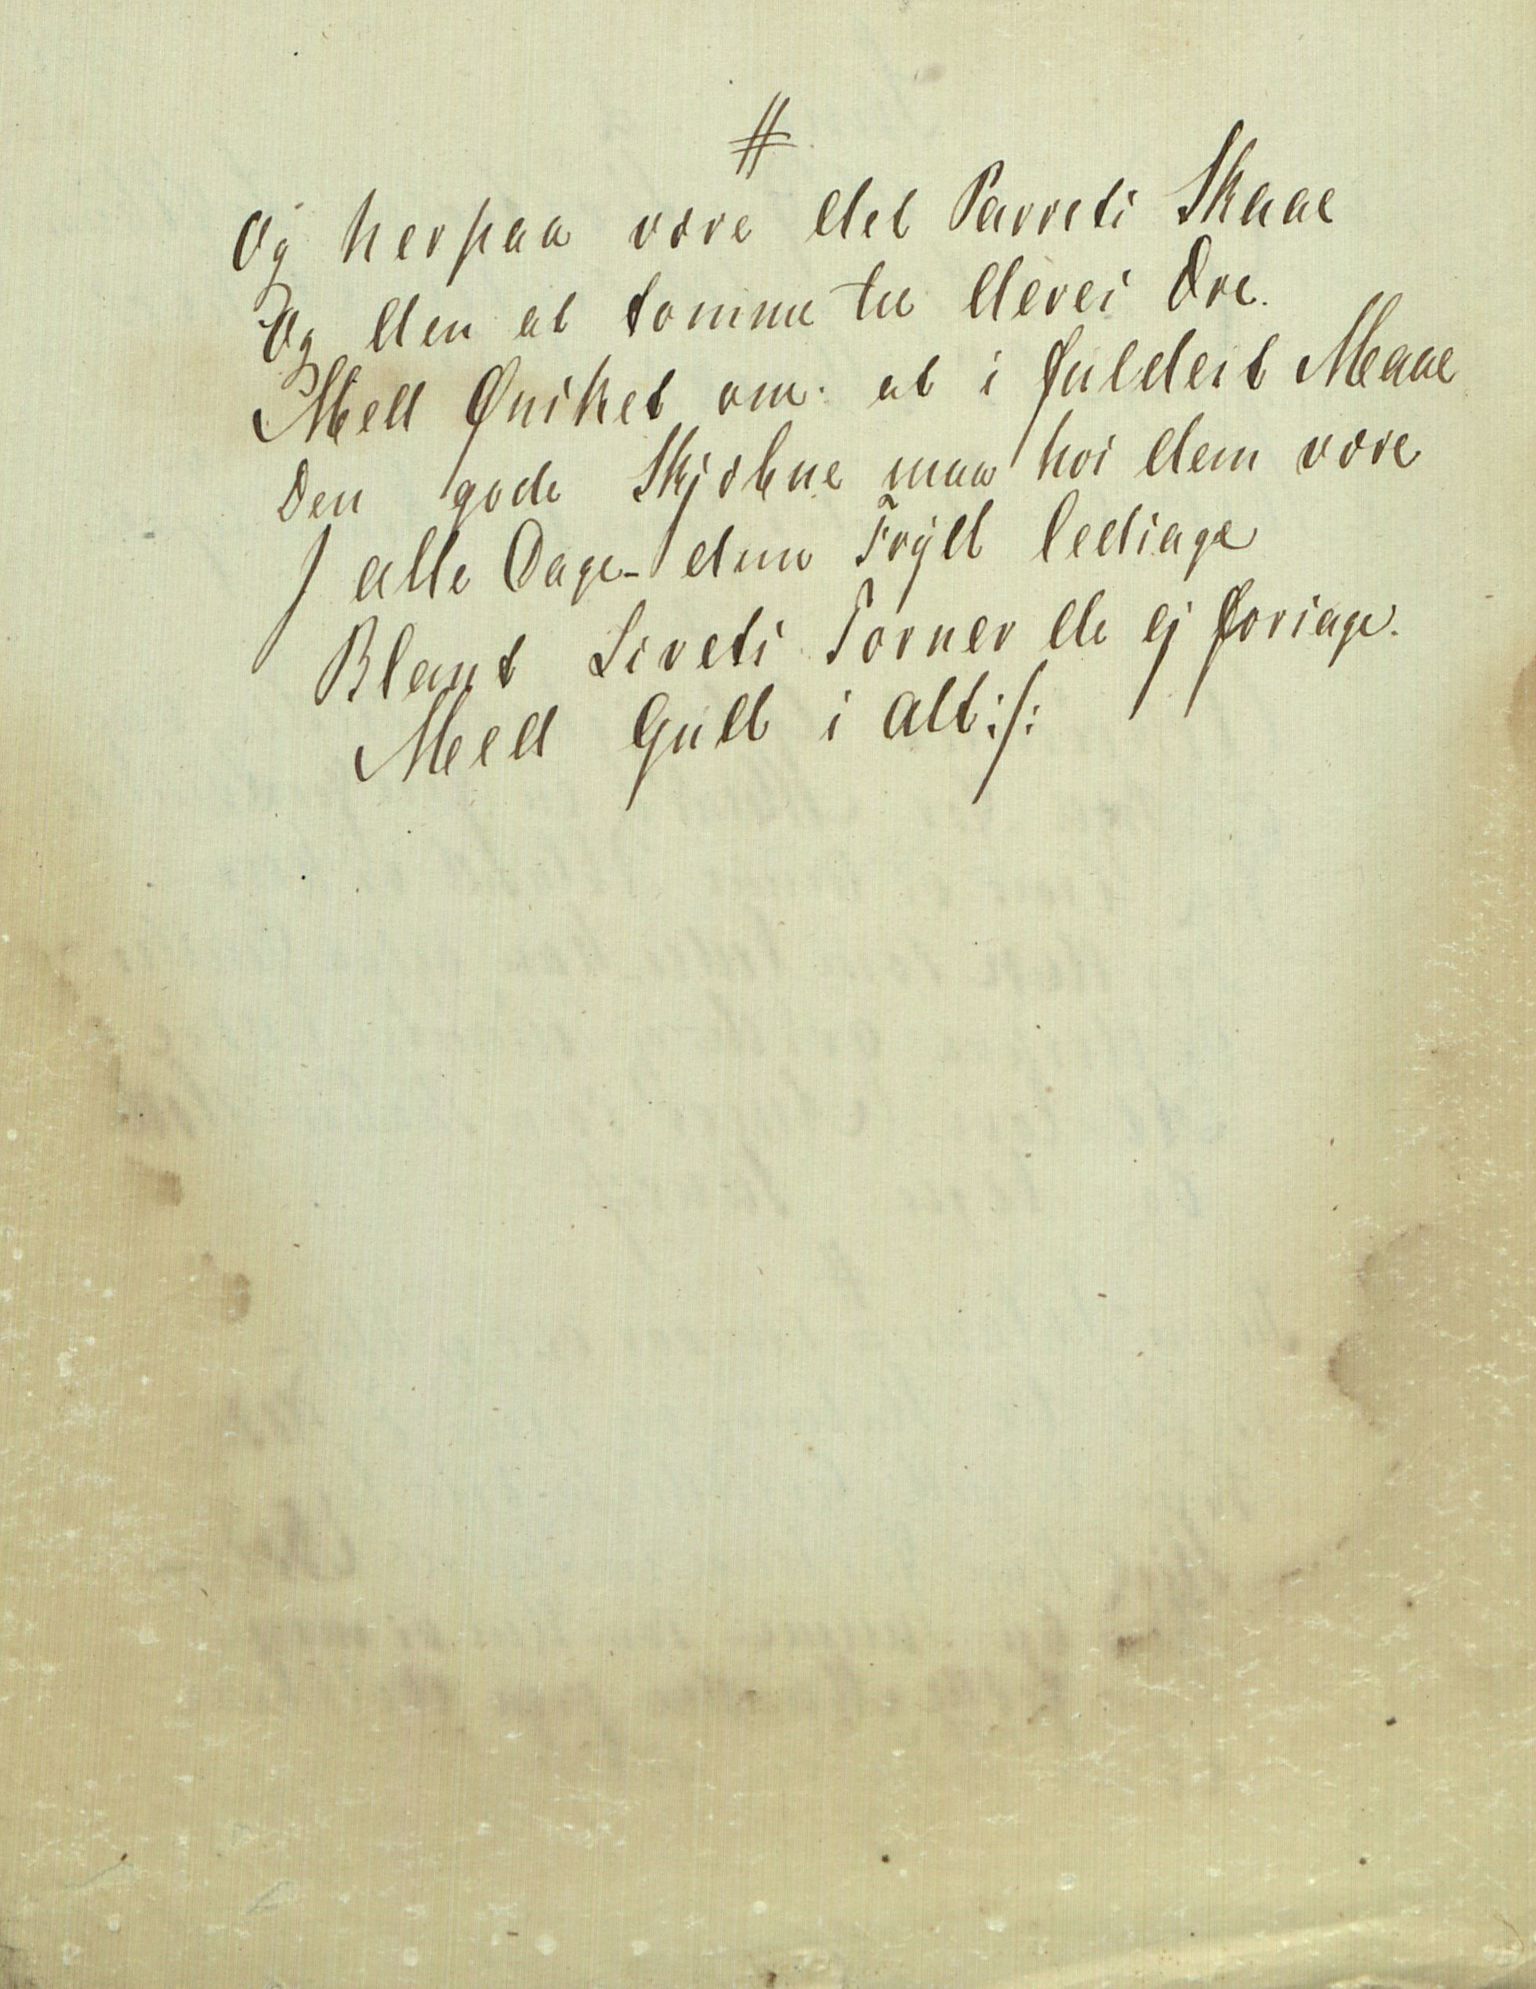 #
Og herpaa være det Parrets Skaal
Og den at tømme til deres Ære.
Med Ønsket om at i fuldest Maal
Den gode Skjæbne maa hos dem være
I alle Dage – dem Fryd ledsage
Blant Livets Torner de ej forsage.
Med Guld i alt :/: